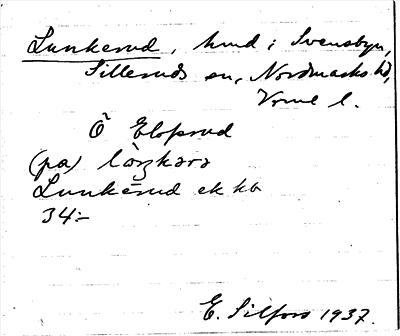 Lunkerud, hmd i Svensbyn,
Silleruds sn, Nordmarks hd,
Vrml l.
Ö Elofsrud
(pa)
Lunkerud ek kb
34:-
E. Silfors 1937.